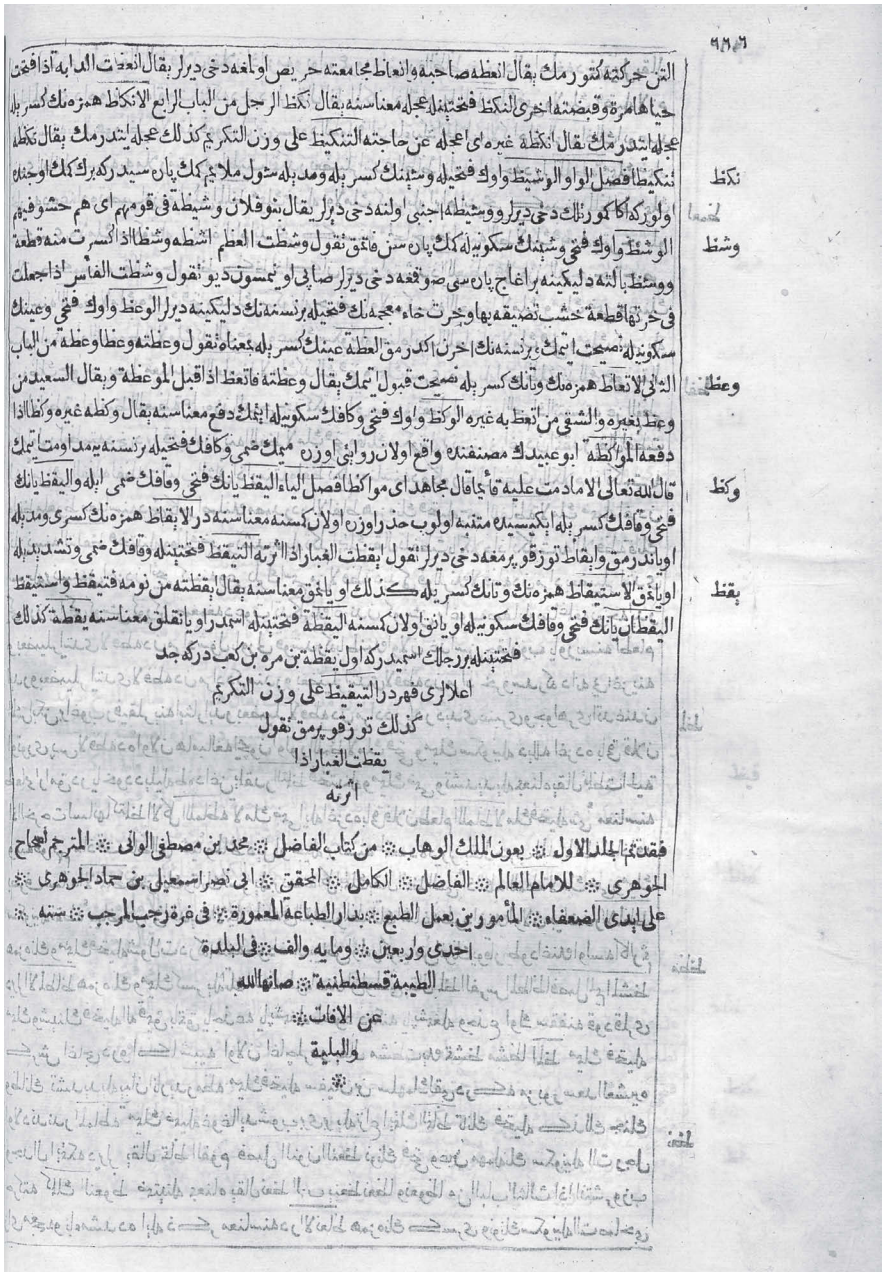 ٦٦٦
التن حركته كتورمك يقال انعظه صاحبه وانعاظ مجامعته حريص اولمغه دخى ديرلر يقال انعظت الدابه اذا فتحت
حياها مرة وقبضته اخرى النكظ فتحتينله عجله معناسنه يقال نكظ الرجل من الباب الرابع الانكاظ همزه نك كسريله
عجله ايتدرمك يقال انكظه غيره اى اعجله عن حاجته التنكيظ على وزن التكريم كذلك عجله ايتدرمك يقال نكظه
نكظ
تنكيظا فصل الواو الوشيظ واوك فتحيله وشينك كسريله ومديله
اولور كه اكا كمورتلك دخى ديرلر ووشيظه اجنبى اولنه دخى ديرلر يقال بنو فلان وشيظة فى قومهم اى هم حشو فيهم
وشظ
الوشظ واوك فتحى وشينك سكونيله كمك پاره سن قاتمق تقول وشظت العظم اشظه وشظا اذا كسرت منه قطعة
ووشظ بالته دليكينه بر اغاج پاره سى صوقمغه دخى ديرلر صاپى اويمسون ديو تقول وشظت الفأس اذا جعلت
فى خرتها قطعة خشب تضيقه بها وخرت خاء معجمه نك فتحيله برنسنه نك دليكينه ديرلر الوعظ واوك فتحى وعينك
سكونيله نصيحت ايتمك وبرنسنه نك اخرن اكدرمق العظة عينك كسريله بمعناه تقول وعظته وعظا وعظة من الباب
وعظ
الثانى الاتعاظ همزه نك وتانك كسريله نصيحت قبول ايتمك يقال وعظته فاتعظ اذا قبل الموعظة ويقال السعيد من
وعظ بغيره والشقى من اتعظ به غيره الوكظ واوك فتحى وكافك سكونيله ايتمك دفع معناسنه يقال وكظه غيره وكظا اذا
دفعه المواكظة ابو عبيدك مصنفنده واقع اولان روايتى اوزره ميمك ضمى وكافك فتحيله برنسنه يه مداومت ايتمك
وكظ
قال الله تعالى الا ما دمت عليه قائما قال مجاهد اى مواكظا فصل الياء اليقظ يانك فتحى وقافك ضمى ايله واليقظ يانك
فتحى وقافك كسريله ايكيسيده متنبه اولوب حذر اوزره اولان كمسنه معناسنه در الايقاظ همزه نك كسرى ومديله
اوياندرمق وايقاظ توز قوپرمغه دخى ديرلر تقول ايقظت الغبار اذا اثرته التيقظ فتحتينله وقافك ضمى وتشديديله
يقظ
اويانمق الاستيقاظ همزه نك وتانك كسريله كذلك اويانمق معناسنه يقال ايقظته من نومه فتيقظ واستيقظ
اليقظان يانك فتحى وقافك سكونيله اويانق اولان كمسنه اليقظة فتحتينله اسمدر اويانقلق معناسنه يقظة كذلك
فتحتينله بر رجلك اسميدر كه اول يقظة بن مره بن كعب در كه جد
اعلالرى فهردر التيقيظ على وزن التكريم
كذلك توز قوپرمق تقول
يقظت الغبار اذا
اثرته
فقد تم الجلد الاول ❊ بعون الملك الوهاب ❊ من كتاب الفاضل ❊ محمد بن مصطفى الوانى ❊ المترجم لصحاح
الجوهرى ❊ للامام العالم ❊ الفاضل ❊ الكامل ❊ المحقق ❊ ابى نصر اسمعيل بن حماد الجوهرى ❊
على ايدى الضعفاء ❊ المأمورين بعمل الطبع ❊ بدار الطباعة المعمورة ❊ فى غرة رجب المرجب ❊ سنه ❊
احدى واربعين ❊ ومايه والف ❊ فى البلدة
الطيبة قسطنطنية ❊ صانها الله
عن الافات ❊
والبلية
❊